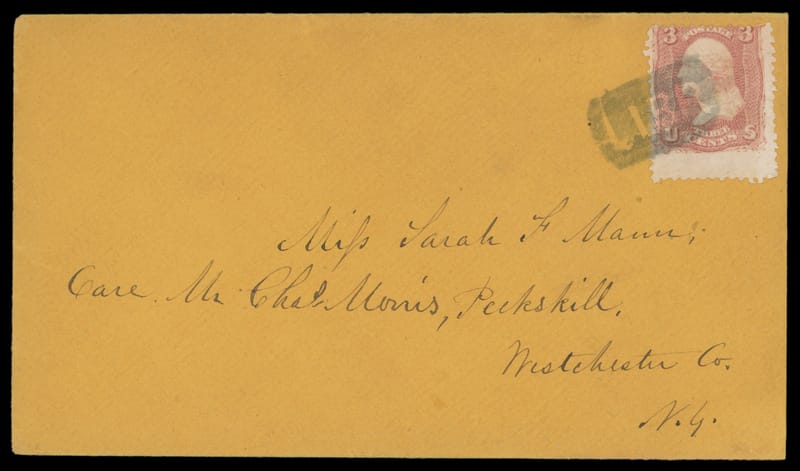 3 POSTAGE 3
U THREE CENTS S
Miss Sarah F Mann,
Care. Mr Chas Morris, Peekskill,
Westchester Co.
N.Y.